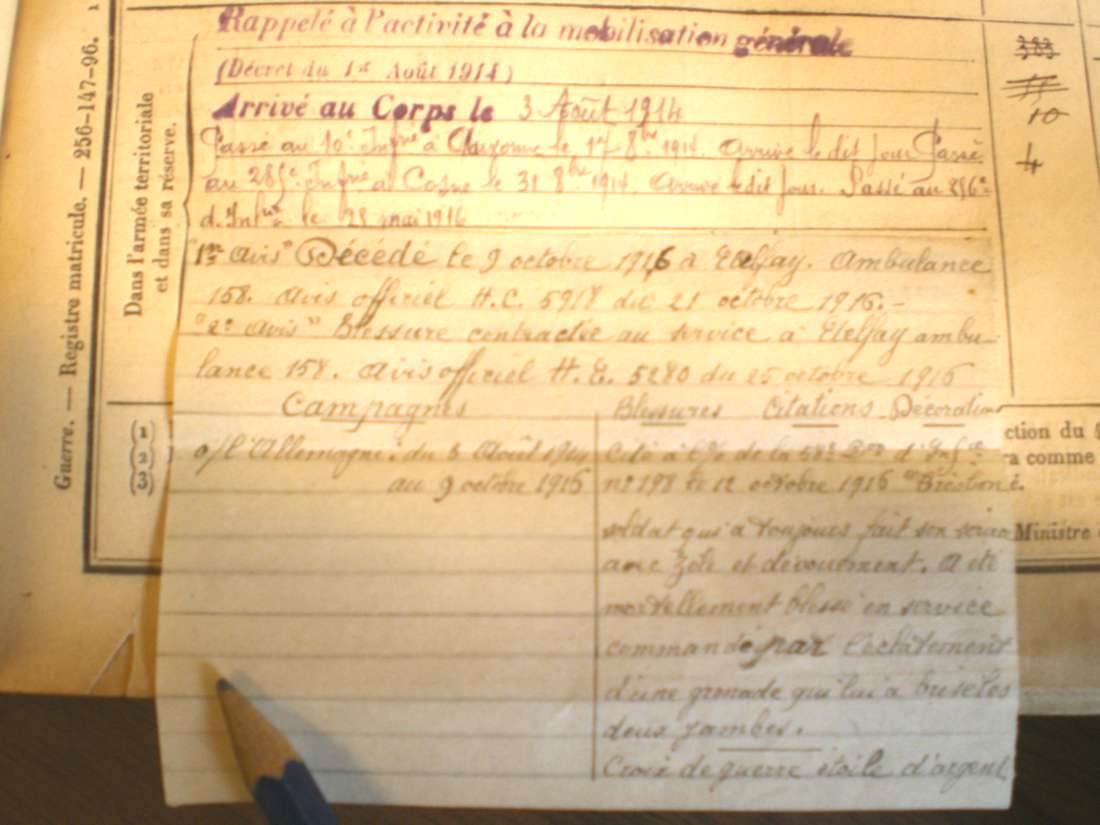 Rappelé à l'activité à la mobilisation générale
(Décret du 1er Août 1914)
Arrivé au Corps le 3 Août 1914
Passé au 10e Infrie à Auxonne le 17-8bre 1914. Arrivé le dit jour Passé
au 285e Infrie à Cosne le 31 8bre 1914. Arrivé le dit jour. Passé au
d'Infrie le 28 mai 1916
"1er Avis" Décédé le 9 octobre 1916 à Etelfay. Ambulance
158. Avis officiel H.C. 5918 du 21 octobre 1916.-
"2e Avis" Blessure contractée au service à Etelfay ambu-
lance 158. Avis officiel 5280 du 25 octobre 1916
Campagnes
c/ l'Allemagne: du 3 Août 1914
au 9 octobre 1916
Blessures Citations Décorations
Cité à l'o/ de la 58e Don d'Infie
n° 198 le 12 octobre 1916
soldat qui a toujours fait son service
avec zèle et dévouement. A été
mortellement blessé en service
commandé par l'éclatement
d'une grenade qui lui a brisé les
deux jambes.
Croix de guerre étoile d'argent
Dans l'armée territoriale
et dans sa réserve.
Guerre. — Registre matricule. — 256-147-96.
383
10
4
(1)
(2)
(3)
ction du
a comme
Ministre